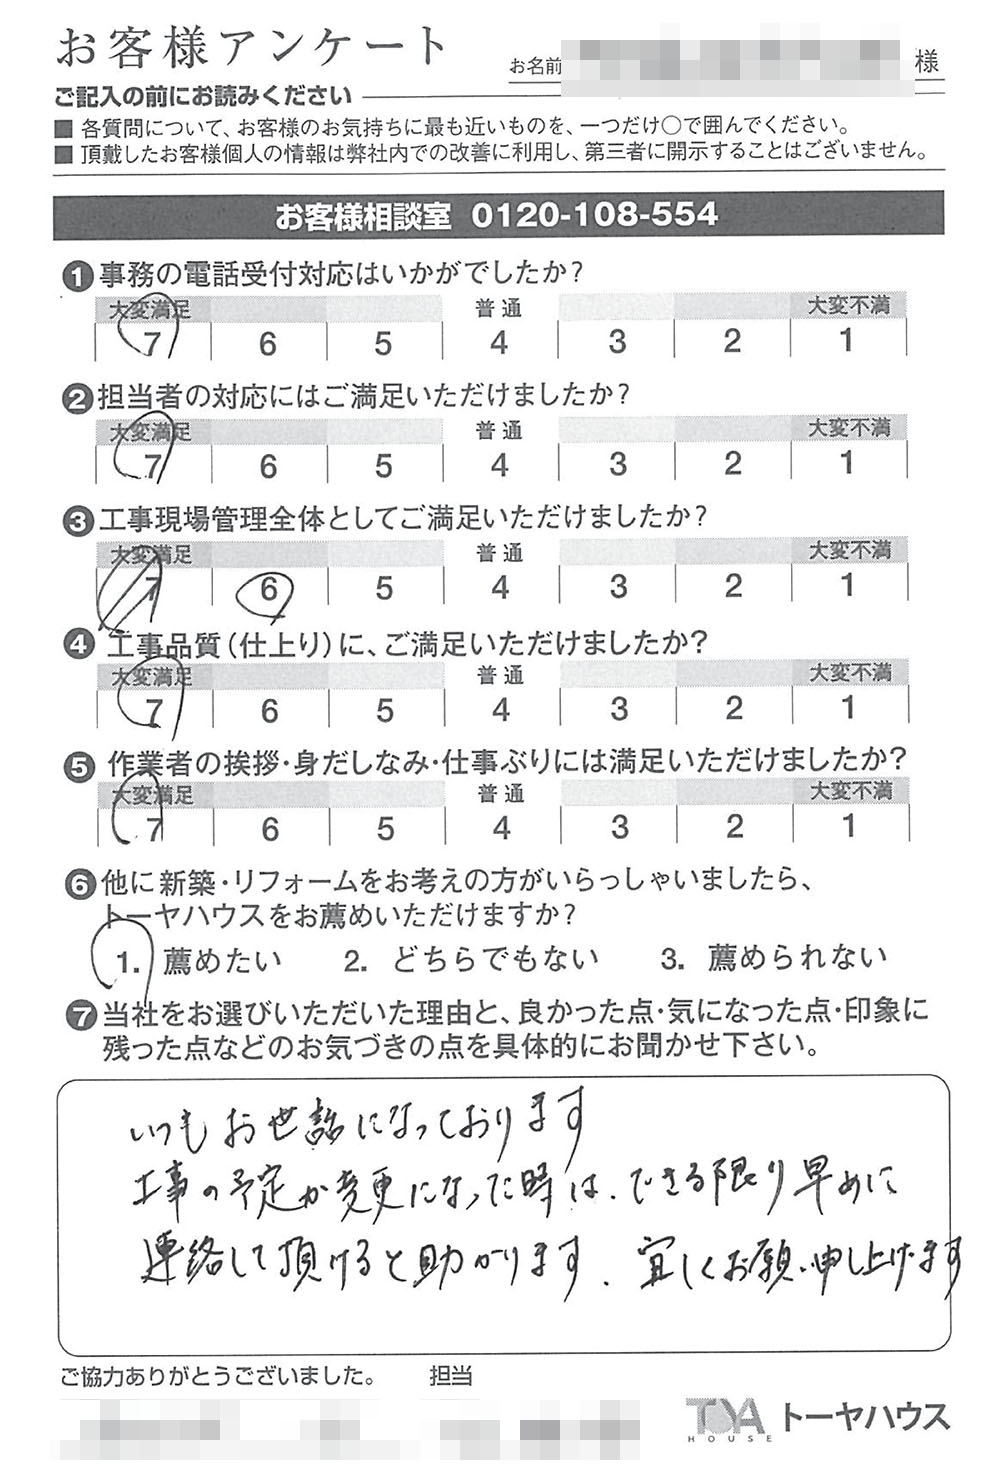 お客様アンケート
お名前 様
ご記入の前にお読みください
■ 各質問について、お客様のお気持ちに最も近いものを、一つだけ〇で囲んでください。
■ 頂戴したお客様個人の情報は弊社内での改善に利用し、第三者に開示することはございません。
お客様相談室 0120-108-554
❶事務の電話受付対応はいかがでしたか?
大変満足 普通 大変不満
7 6 5 4 3 2 1
❷担当者の対応にはご満足いただけましたか?
大変満足 普通 大変不満
7 6 5 4 3 2 1
❸工事現場管理全体としてご満足いただけましたか?
大変満足 普通 大変不満
7 6 5 4 3 2 1
❹工事品質(仕上り)に、ご満足いただけましたか?
大変満足 普通 大変不満
7 6 5 4 3 2 1
❺作業者の挨拶・身だしなみ・仕事ぶりには満足いただけましたか?
大変満足 普通 大変不満
7 6 5 4 3 2 1
❻他に新築・リフォームをお考えの方がいらっしゃいましたら、
トーヤハウスをお薦めいただけますか?
1. 薦めたい 2. どちらでもない 3. 薦められない
❼当社をお選びいただいた理由と、良かった点・気になった点・印象に
残った点などのお気づきの点を具体的にお聞かせ下さい。
いつもお世話になっております
工事の予定が変更になった時は、できる限り早めに
連絡して頂けると助かります、宜しくお願い申し上げます
ご協力ありがとうございました。 担当
TOYA HOUSE トーヤハウス